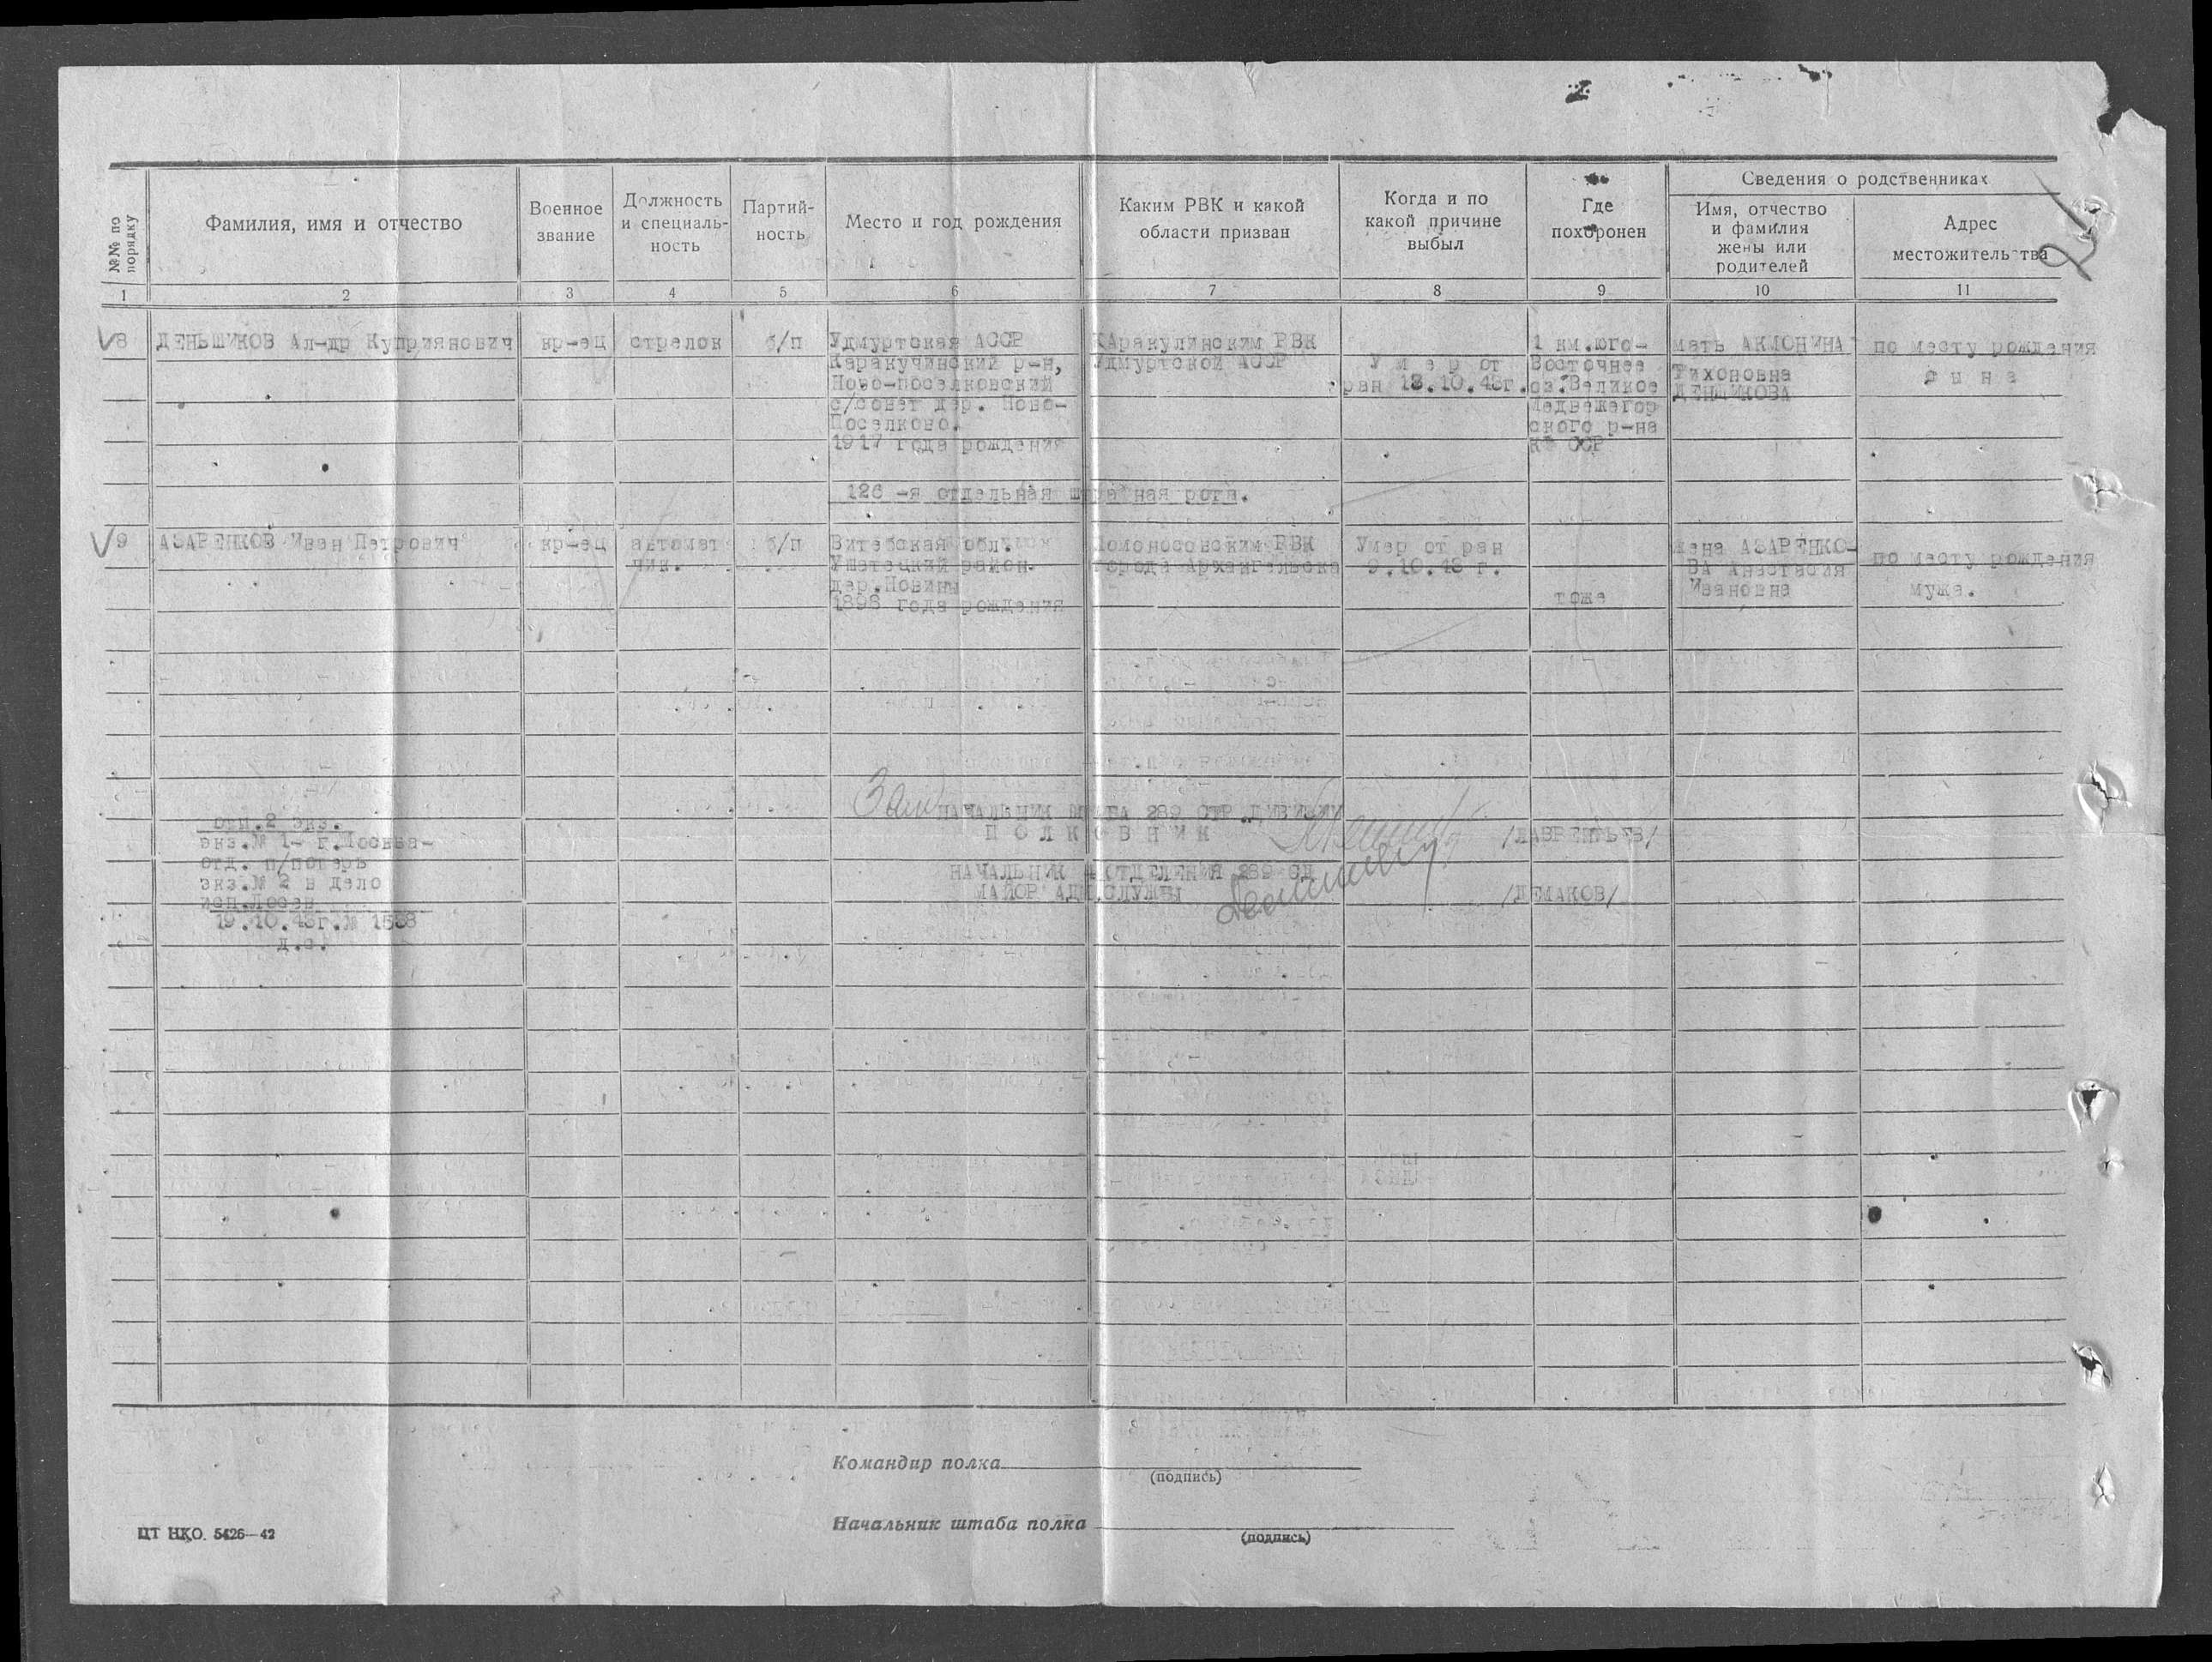 №№ по порядку
Фамилия, имя и отчество
Военное звание
Должность и специаль-ность
Партий-ность
Место и год рождения
Каким РВК и какой области призван
Когда и по какой причине выбыл
Где похоронен
Сведения о родственниках
Имя, отчество и фамилия жены или родителей
Адрес местожительства
1 2 3 4 5 6 7 8 9 10 11
8 ДЕНЬШИКОВ Ал-др Куприянович кр-ец стрелок б/п Удмуртская АССР КАракулинским РВК 1 км.юго- мать АКМОНИНА по месту рождения
Каракучинский р-н, Удмуртской АССР У м е р от Восточнее Тихоновна с ы н а
Ново-поселковский ран 13.10.43г. оз.Великое ДЕНЬШИКОВА
с/совет дер. Ново- Медвежегор
Поселково. ского р-на
1917 года рождения КФ ССР
126 -я отдельная штрафная рота.
9 АЗАРЕНКОВ Иван Петрович кр-ец автомат б/п Витебская обл. Ломоносовским РВК Умер от ран жена АЗАРЕНКО- по месту рождения
чик. Ушатецкий район. города Архангельска 9.10.43 г. ВА Анастасия
дер.Новины Ивановна мужа.
1898 года рождения тоже
Зам НАЧАЛЬНИК ШТАБА 289 СТР.ДИВИЗИИ
П О Л К О В Н И К /ЛАВРЕНТЬЕВ/
НАЧАЛЬНИК 4 ОТДЕЛЕНИЯ 289 СД
МАЙОР АДМ.СЛУЖБЫ /ДЕМАКОВ/
отп.2 экз.
экз.№ 1- г.Москва-
отд. п/потерь
экз.№ 2 в дело
исп.Лосен
19.10.43г.№ 1538
д.с.
Командир полка
(подпись)
Начальник штаба полка
(подпись)
ЦТ НКО. 5426—42